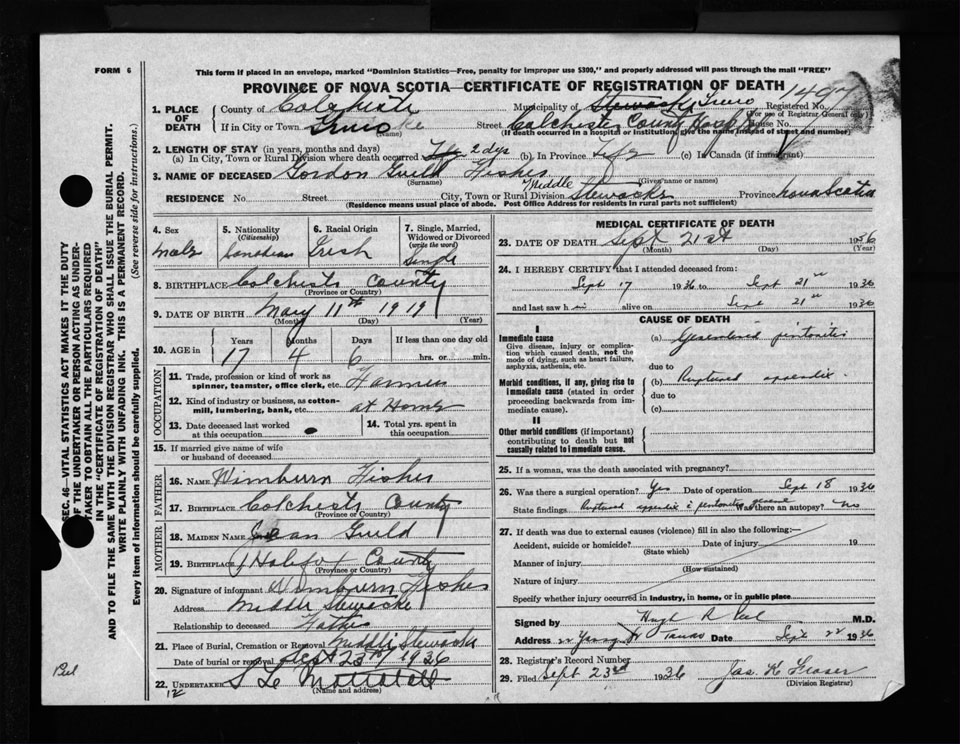 FORM 6
This form if placed in an envelope, marked "Dominion Statistics—Free, penalty for improper use $300," and properly addressed will pass through the mail "FREE"
PROVINCE OF NOVA SCOTIA—CERTIFICATE OF REGISTRATION OF DEATH
1. PLACE OF DEATH
County of Colchester Municipality of Stewiacke Truro Registered No. 1497
(For use of Registrar General only)
If in City or Town Truro (Name) Street Colchester County Hospital House No.
(If death occurred in a hospital or institution, give the name instead of street and number)
2. LENGTH OF STAY (in years, months and days)
(a) In City, Town or Rural Division where death occurred 2 dys (b). In Province Life (c) In Canada (if immigrant)
3. NAME OF DECEASED Gordon Guild Fisher
(Surname) (Given name or names)
RESIDENCE No. Street City, Town or Rural Division Middle Stewiacke Province Nova Scotia
(Residence means usual place of abode. Post Office Address for residents in rural parts not sufficient)
4. Sex
Male
5. Nationality (Citizenship)
Canadian
6. Racial Origin
Irish
7. Single, Married, Widowed or Divorced (write the word)
Single
8. BIRTHPLACE Colchester County
(Province or Country)
9. DATE OF BIRTH May 11th 1919
(Month) (Day) (Year)
10. AGE in
Years Months Days If less than one day old
17 4 6 hrs. or min.
OCCUPATION
11. Trade, profession or kind of work as spinner, teamster, office clerk, etc. Farmer
12. Kind of industry or business, as cotton-mill, lumbering, bank, etc. at Home
13. Date deceased last worked at this occupation
14. Total yrs. spent in this occupation
15. If married give name of wife or husband of deceased
FATHER
16. NAME Wimburn Fisher
17. BIRTHPLACE Colchester County
(Province or Country)
MOTHER
18. MAIDEN NAME Guild
19. BIRTHPLACE Halifax County
(Province or Country)
20. Signature of informant Wimburn Fisher
Address Middle Stewiacke
Relationship to deceased Father
21. Place of Burial, Cremation or Removal Middle Stewiacke
Date of burial or removal Sept 23rd 1936
22. UNDERTAKER
(Name and address)
12
MEDICAL CERTIFICATE OF DEATH
23. DATE OF DEATH Sept 21st 1936
(Month) (Day) (Year)
24. I HEREBY CERTIFY that I attended deceased from:
Sept 17 1936 to Sept 21st 1936
and last saw him alive on Sept 21st 1936
CAUSE OF DEATH
I
Immediate cause
Give disease, injury or complication which caused death, not the mode of dying, such as heart failure, asphyxia, asthenia, etc.
(a) Generalized peritonitis
due to
Morbid conditions, if any, giving rise to immediate cause (stated in order proceeding backwards from immediate cause).
(b) Ruptured appendix
due to
(c)
II
Other morbid conditions (if important) contributing to death but not causally related to immediate cause.
25. If a woman, was the death associated with pregnancy?
26. Was there a surgical operation? Yes Date of operation Sept 18 1936
State findings Ruptured appendix & peritonitis general Was there an autopsy? No
27. If death was due to external causes (violence) fill in also the following:—
Accident, suicide or homicide? Date of injury 19
(State which)
Manner of injury
(How sustained)
Nature of injury
Specify whether injury occurred in industry, in home, or in public place
Signed by Hugh R Peel M.D.
Address 22 Young St Truro Date Sept 22 1936
28. Registrar's Record Number
29. Filed Sept 23rd 1936 Jas. K Fraser
(Division Registrar)
SEC. 46—VITAL STATISTICS ACT MAKES IT THE DUTY
OF THE UNDERTAKER OR PERSON ACTING AS UNDER-
TAKER TO OBTAIN ALL THE PARTICULARS REQUIRED
IN THE "CERTIFICATE OF REGISTRATION OF DEATH"
AND TO FILE THE SAME WITH THE DIVISION REGISTRAR WHO SHALL ISSUE THE BURIAL PERMIT.
WRITE PLAINLY WITH UNFADING INK. THIS IS A PERMANENT RECORD.
Every item of information should be carefully supplied. (See reverse side for instructions).